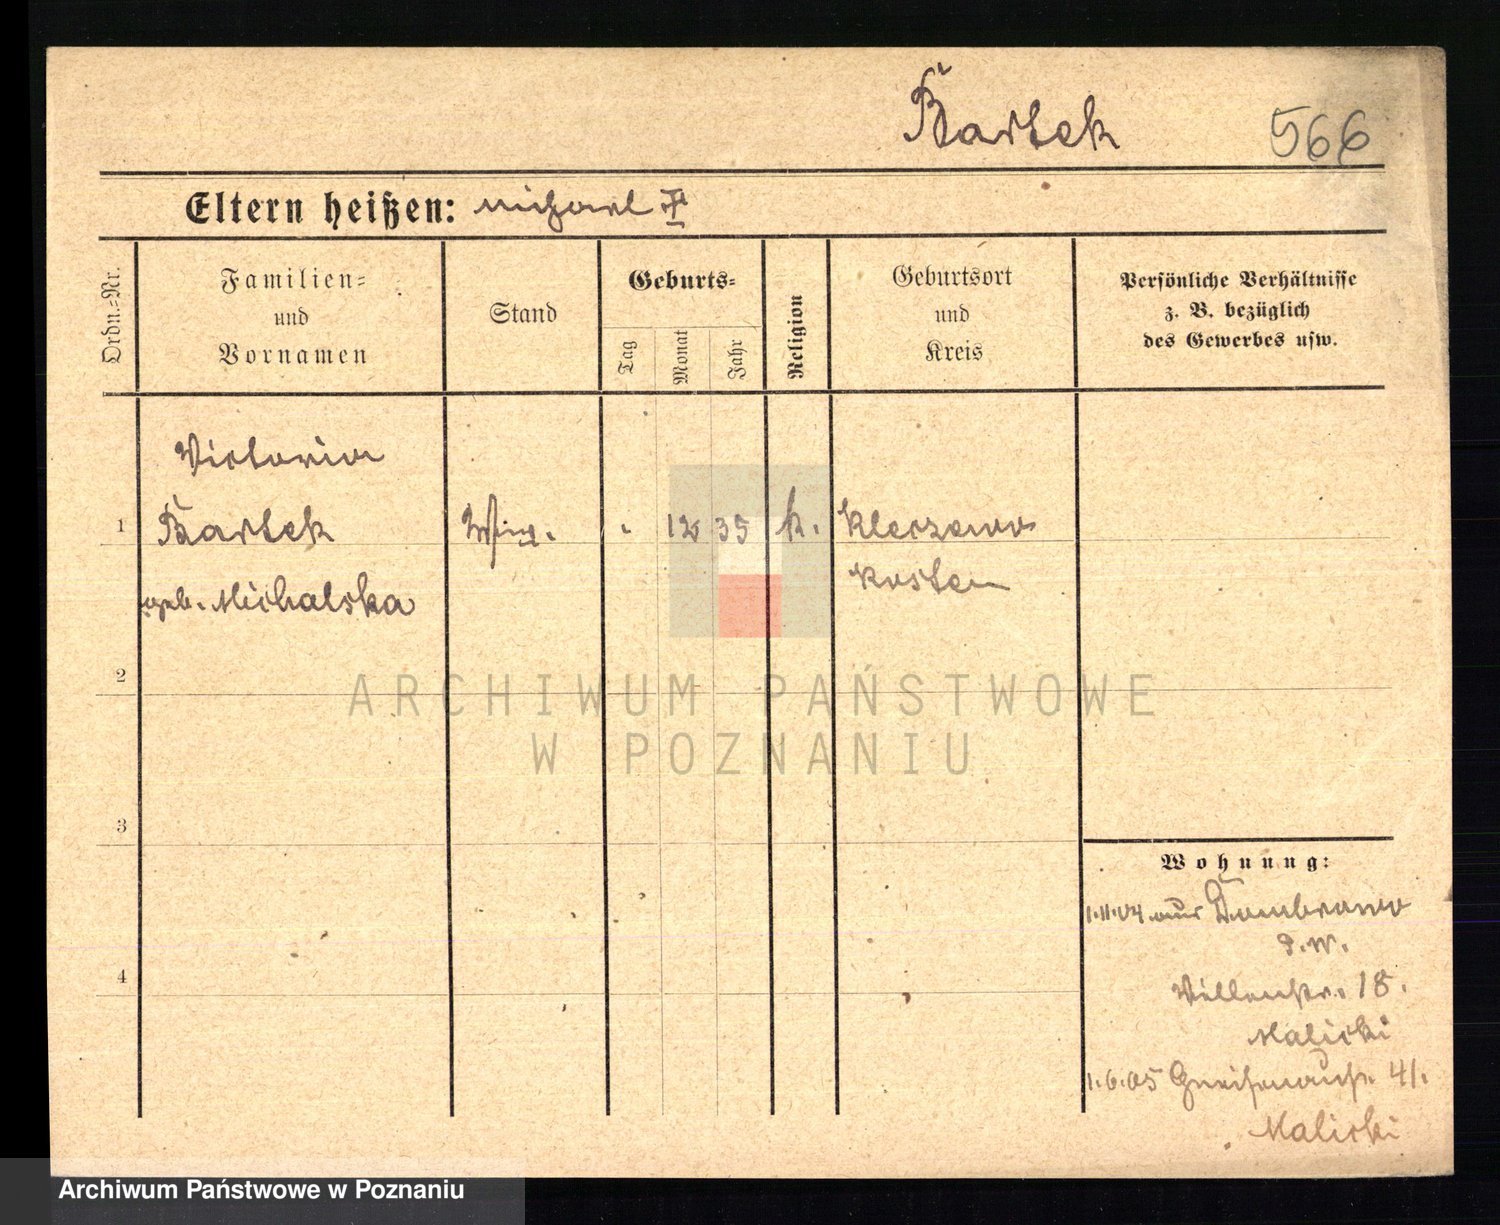 Bartek 566
Eltern heißen: Michael
Ordn.-Nr.
Familien-
und
Vornamen
Stand
Geburts-
Tag
Monat
Jahr
Religion
Geburtsort
und
Kreis
Persönliche Verhältnisse
z. B. bezüglich
des Gewerbes usw.
Victoria
1 Bartek . 12 35 k. Kleczewo
Kosten
geb. Michalska
2
ARCHIWUM PAŃSTWOWE
W POZNANIU
3
4
Wohnung:
1.11.04 aus Dombrowo
P.W.
Villenstr. 18.
Malicki
1.6.05 Gneisenaustr. 41.
Malicki
Archiwum Państwowe w Poznaniu